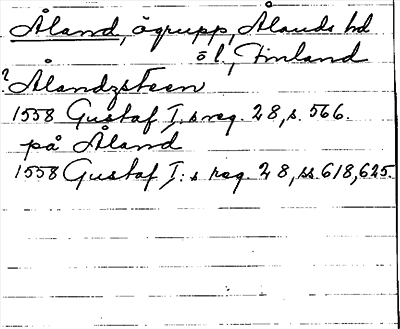 Åland, ögrupp, Ålands hd
öl., Finland
? Ålandzsteen
1558 Gustaf I:s reg. 28, s. 566.
på Åland
1558 Gustaf I:s reg. 28, ss. 618, 625.